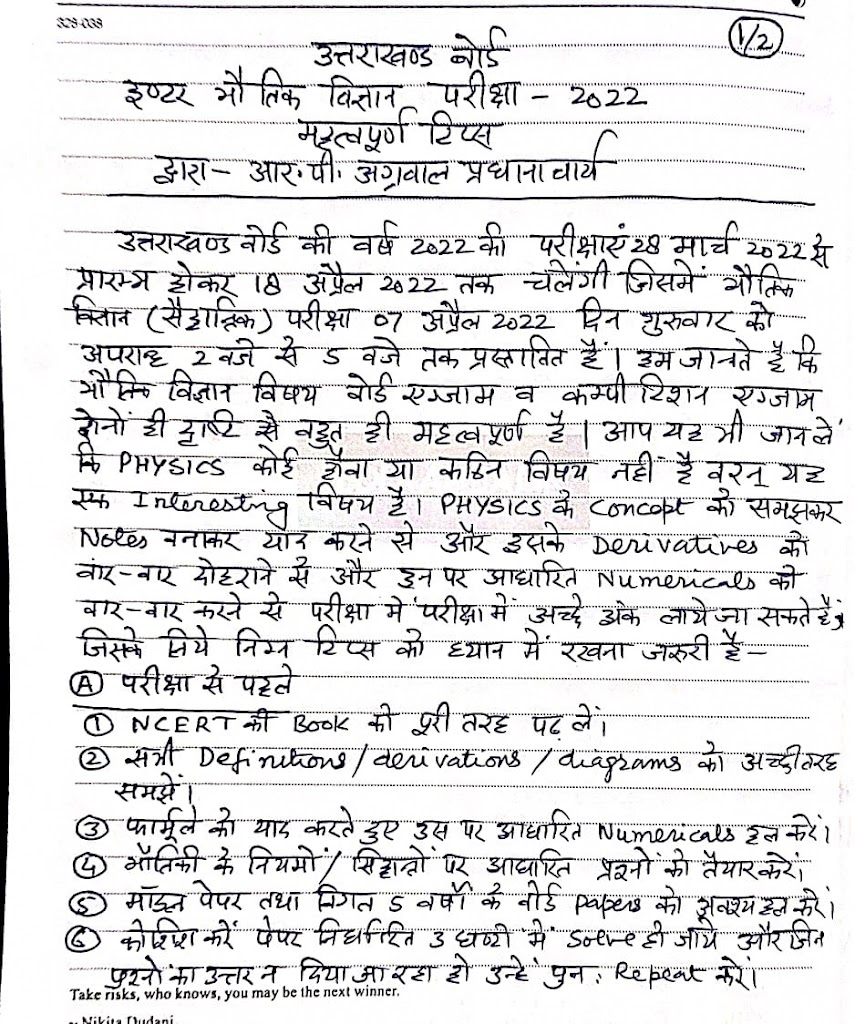 328-038
1/2
उत्तराखण्ड बोर्ड
इण्टर भौतिक विज्ञान परीक्षा - 2022
महत्वपूर्ण टिप्स
द्वारा - आर.पी. अग्रवाल प्रधानाचार्य
उत्तराखण्ड बोर्ड की वर्ष 2022 की परीक्षाएं 28 मार्च 2022 से
प्रारम्भ होकर 18 अप्रैल 2022 तक चलेंगी जिसमें भौतिक
विज्ञान (सैद्धान्तिक) परीक्षा 07 अप्रैल 2022 दिन गुरुवार को
अपराह्न 2 बजे से 5 बजे तक प्रस्तावित हैं। हम जानते है कि
भौतिक विज्ञान विषय बोर्ड एग्जाम व कम्पीटिशन एग्जाम
दोनों ही दृष्टि से बहुत ही महत्वपूर्ण है। आप यह भी जान लें
कि PHYSICS कोई हौवा या कठिन विषय नहीं है वरन् यह
एक Interesting विषय है। PHYSICS के Concept को समझकर
Notes बनाकर याद करने से और इसके Derivatives को
बार-बार दोहराने से और इन पर आधारित Numericals को
बार-बार करने से परीक्षा में परीक्षा में अच्छे अंक लाये जा सकते हैं,
जिसके लिये निम्न टिप्स को ध्यान में रखना जरुरी है -
A परीक्षा से पहले
1 NCERT की Book को पूरी तरह पढ़ लें।
2 सभी Definitions/derivations/diagrams को अच्छी तरह
समझें।
3 फार्मूले को याद करते हुए उस पर आधारित Numericals हल करें।
4 भौतिकी के नियमों/सिद्धान्तों पर आधारित प्रश्नों को तैयार करें।
5 मॉडल पेपर तथा विगत 5 वर्षों के बोर्ड papers को अवश्य हल करें।
6 कोशिश करें पेपर निर्धारित 3 घण्टों में Solve हो जाये और जिन
प्रश्नों का उत्तर न दिया जा रहा हो उन्हें पुनः Repeat करें।
Take risks, who knows, you may be the next winner.
~ Nikita Dudani